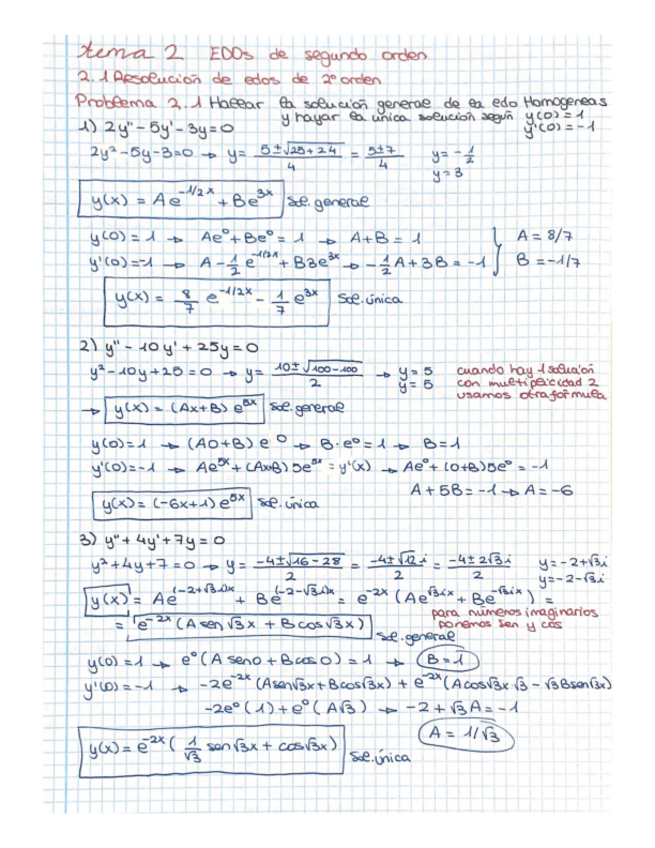 tema 2 EDOs de segundo orden
2.1 Resolución de edos de 2º orden
Problema 2.1 Hallar la solución general de la edo Homogeneas
y hayar la única solución según y(0)=1
y'(0)=-1
1) 2y''-5y'-3y=0
2y²-5y-3=0 → y= (5±√(25+24))/4 = (5±7)/4 y=-1/2
y=3
y(x) = Ae^(-1/2x) + Be^(3x) Sol. general
y(0)=1 → Ae⁰+Be⁰=1 → A+B=1 } A=8/7
y'(0)=-1 → A-1/2 e^(-1/2x) + B3e^(3x) → -1/2A+3B=-1 } B=-1/7
y(x) = 8/7 e^(-1/2x) - 1/7 e^(3x) Sol. única
2) y''-10y'+25y=0
y²-10y+25=0 → y= (10±√(100-100))/2 → y=5 cuando hay 1 solución
y=5 con multiplicidad 2
usamos otra formula
→ y(x) = (Ax+B) e^(5x) Sol. general
y(0)=1 → (A0+B) e⁰ → B·e⁰=1 → B=1
y'(0)=-1 → Ae^(5x) + (Ax+B) 5e^(5x) = y'(x) → Ae⁰+(0+B)5e⁰=-1
A+5B=-1 → A=-6
y(x) = (-6x+1) e^(5x) Sol. única
3) y''+4y'+7y=0
y²+4y+7=0 → y= (-4±√(16-28))/2 = (-4±√12 i)/2 = (-4±2√3i)/2 y=-2+√3i
y=-2-√3i
y(x) = Ae^((-2+√3i)x) + Be^((-2-√3i)x) = e^(-2x) (Ae^(√3ix) + Be^(-√3ix)) =
para números imaginarios
= e^(-2x) (A sen√3x + B cos√3x) ponemos sen y cos
Sol. general
y(0)=1 → e⁰(A sen0 + B cos0)=1 → B=1
y'(0)=-1 → -2e^(-2x) (Asen√3x+Bcos√3x) + e^(-2x) (Acos√3x √3 - √3Bsen√3x)
-2e⁰(1)+e⁰(A√3) → -2+√3A=-1
A=1/√3
y(x) = e^(-2x) (1/√3 sen√3x + cos√3x) Sol. única